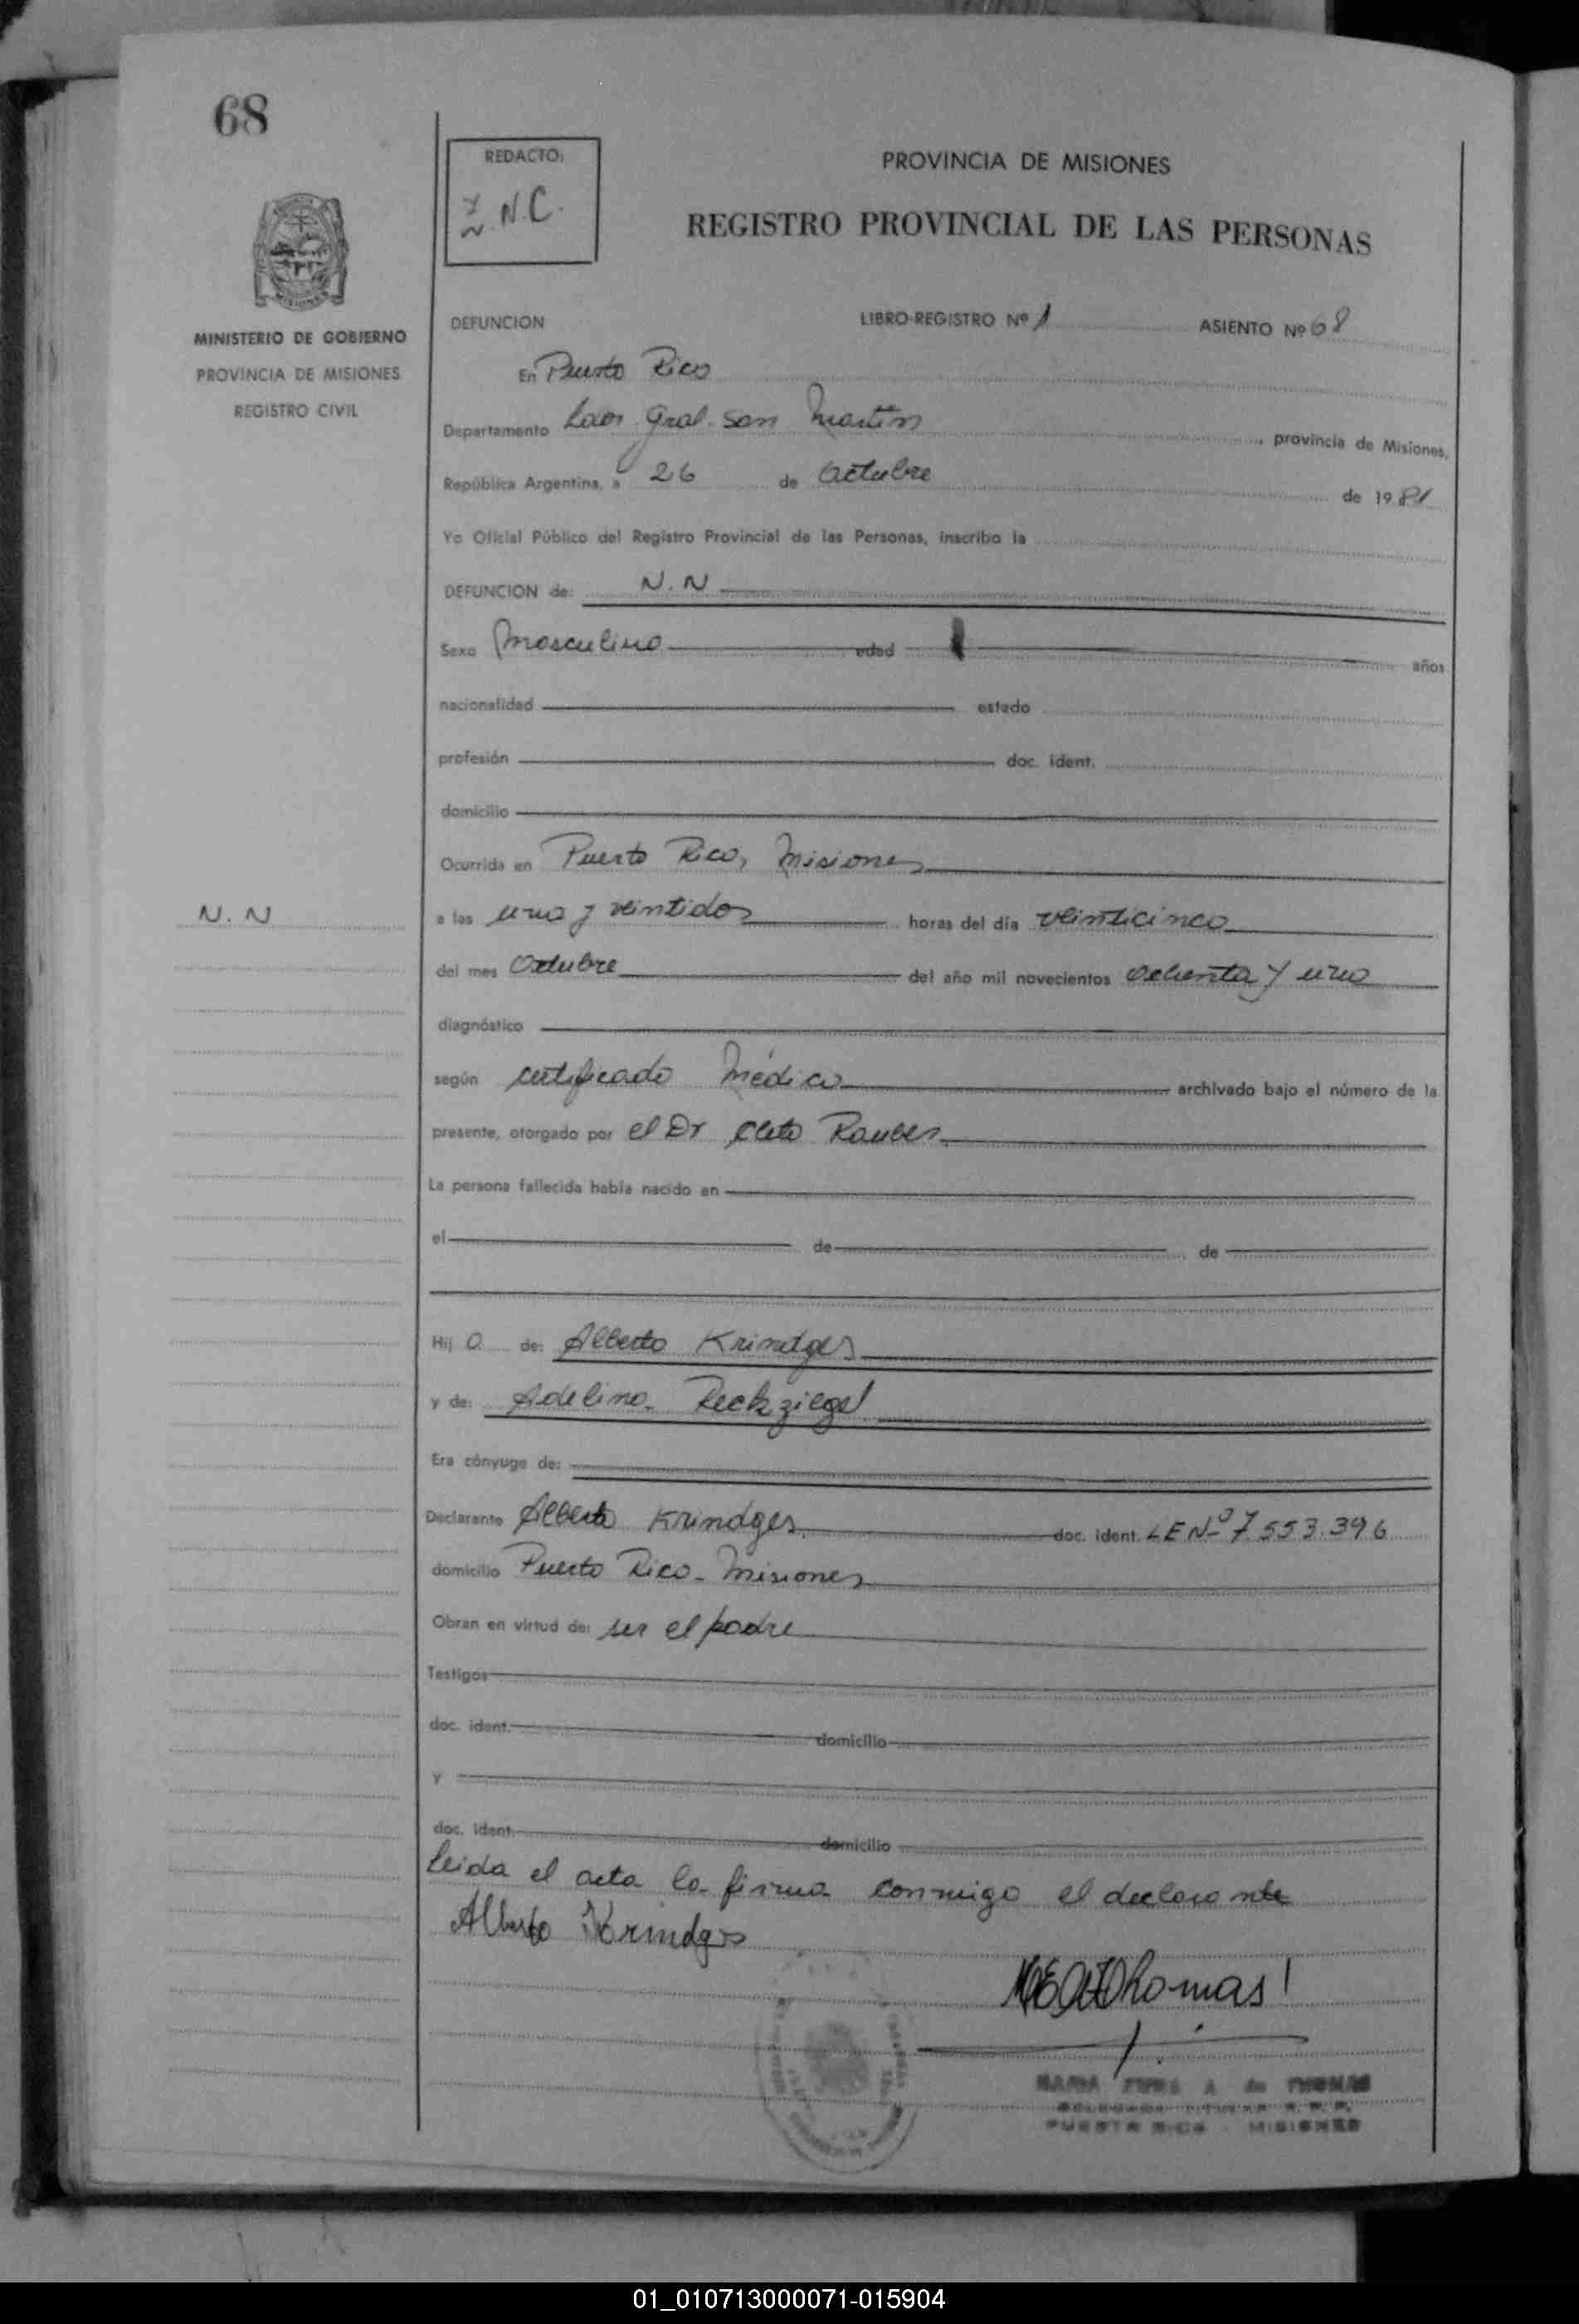 68
REDACTO:
N.C.
PROVINCIA DE MISIONES
REGISTRO PROVINCIAL DE LAS PERSONAS
MINISTERIO DE GOBIERNO
PROVINCIA DE MISIONES
REGISTRO CIVIL
DEFUNCION LIBRO-REGISTRO Nº 1 ASIENTO Nº 68
En Puerto Rico
Departamento Ldor Gral. San Martín, provincia de Misiones,
República Argentina, a 26 de Octubre de 1981
Yo Oficial Público del Registro Provincial de las Personas, inscribo la
DEFUNCION de: N. N
Sexo Masculino edad años
nacionalidad estado
profesión doc. ident.
domicilio
Ocurrida en Puerto Rico, Misiones
N. N
a las una y veintidos horas del día veinticinco
del mes Octubre del año mil novecientos ochenta y uno
diagnóstico
según certificado Médico archivado bajo el número de la
presente, otorgado por el Dr Cleto Rauber
La persona fallecida había nacido en
el de de
Hij o de: Alberto Krindges
y de: Adelina Reckziegel
Era cónyuge de:
Declarante Alberto Krindges doc. ident. LE Nº 7.553.396
domicilio Puerto Rico - Misiones
Obran en virtud de: ser el padre
Testigos
doc. ident. domicilio
y
doc. ident. domicilio
Leida el acta la firma conmigo el declarante
Alberto Krindges
Thomas
MARIA A de THOMAS
DELEGADA TITULAR R. P. P.
PUERTO RICO - MISIONES
01_010713000071-015904